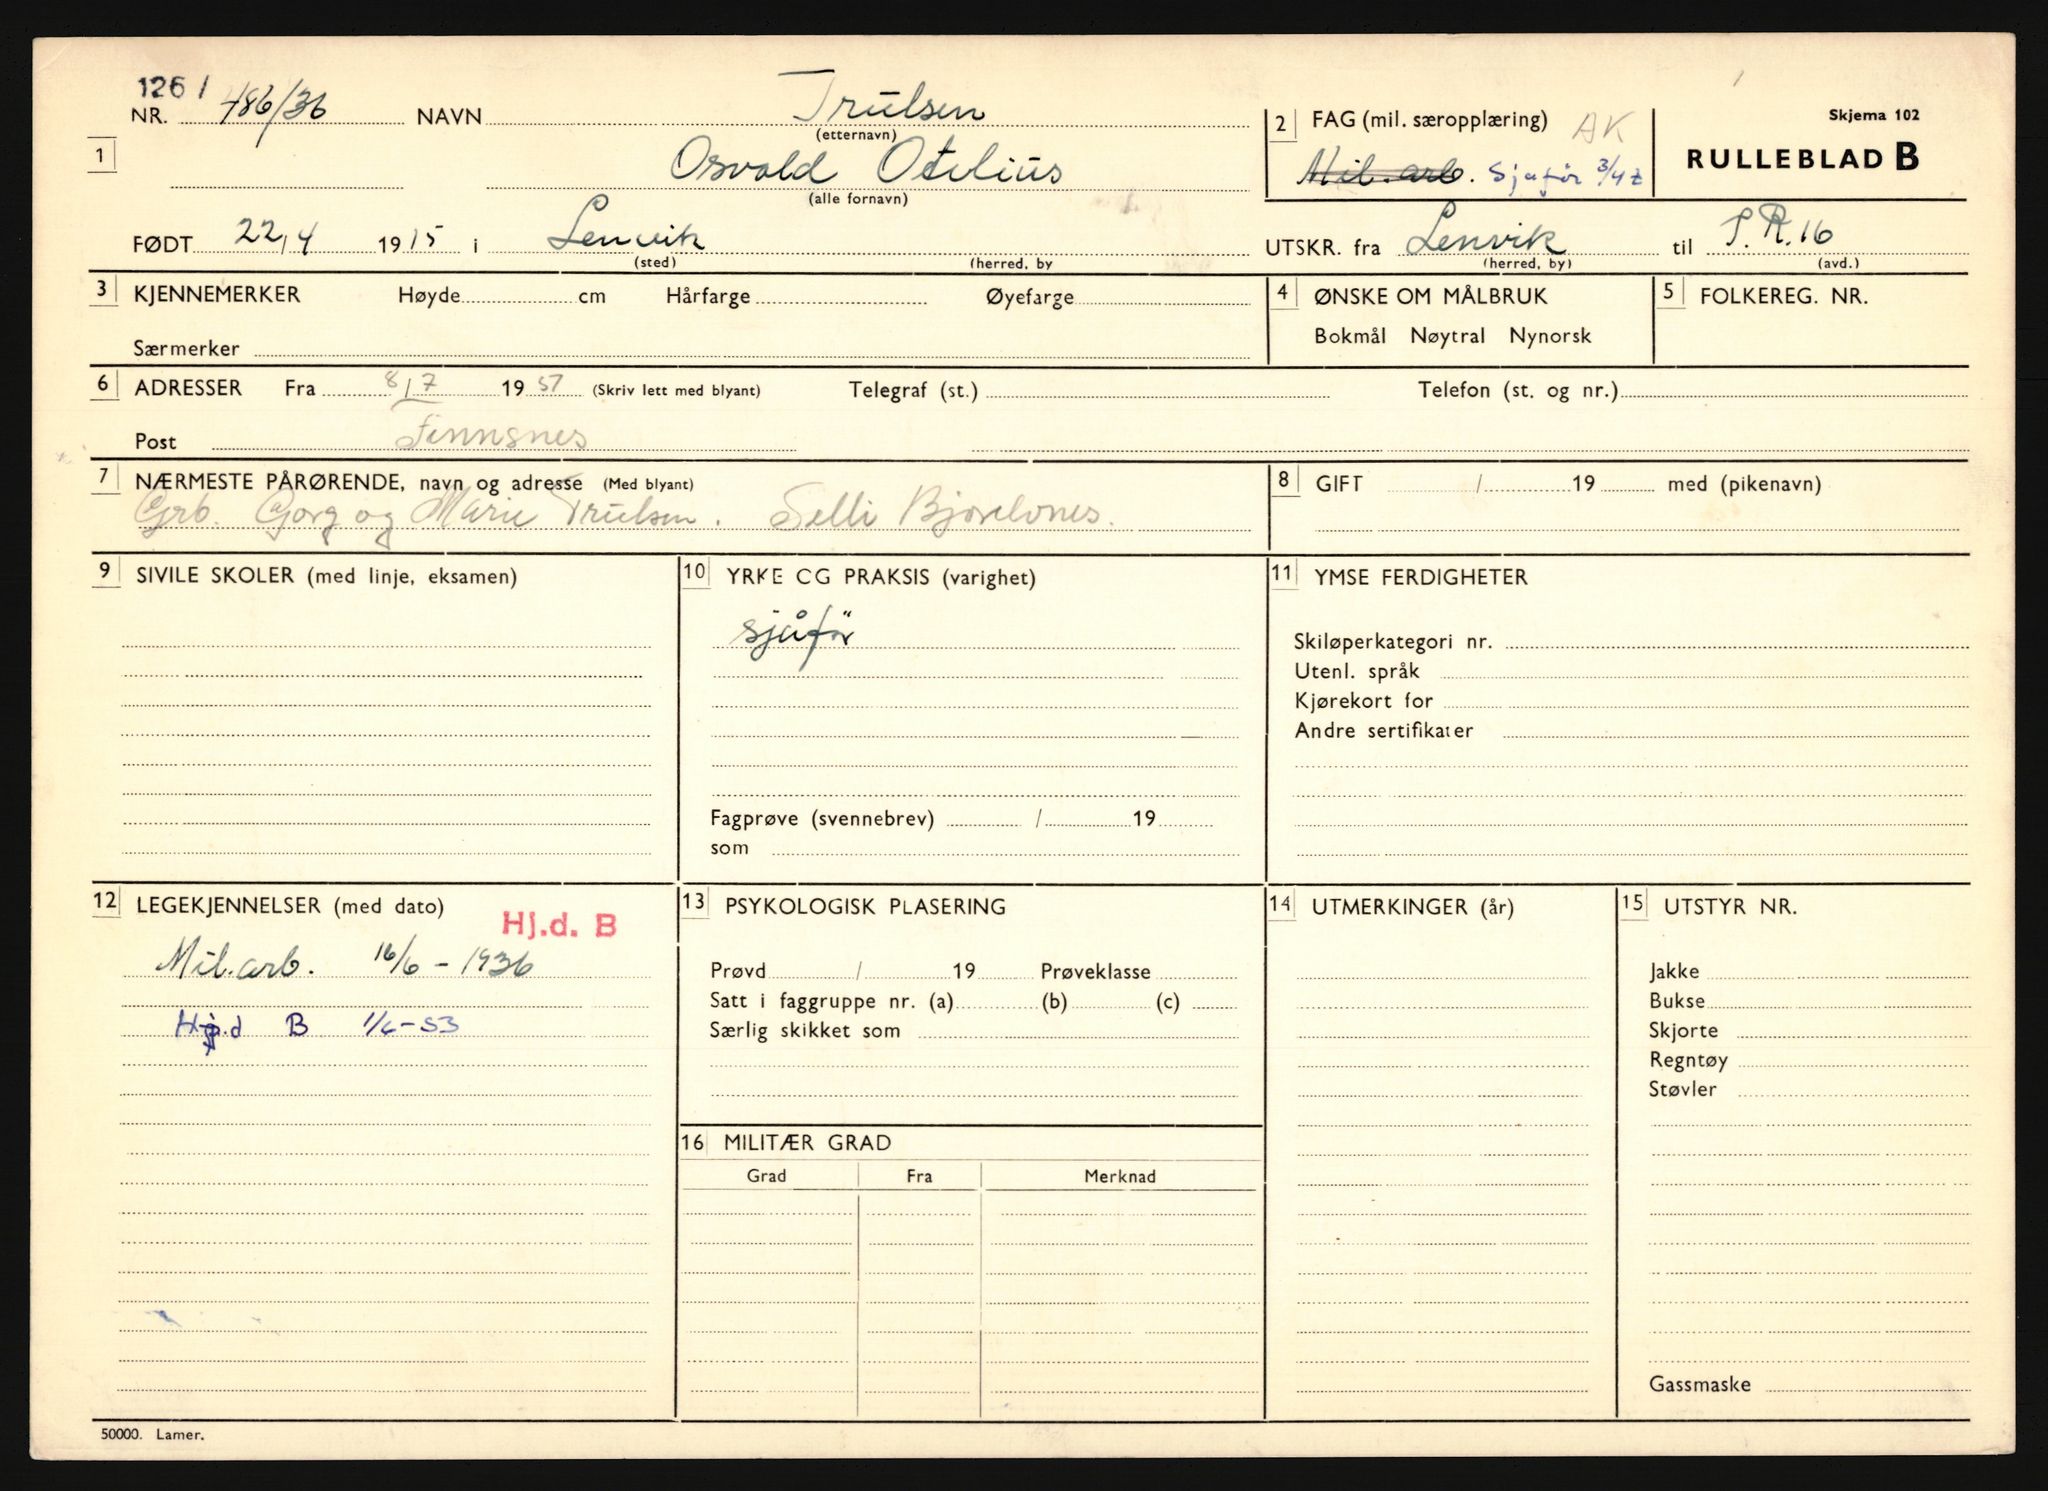 126 / 486/36
NR. NAVN Trulsen
(etternavn)
1 Osvold Otelius
(alle fornavn)
FØDT 22/4 1915 i Lenvik
(sted) (herred, by
2 FAG (mil. særopplæring) AK
Mil. arb. Sjafør 3/42
Skjema 102
RULLEBLAD B
UTSKR. fra Lenvik til I.R.16
(herred, by) (avd.)
3 KJENNEMERKER Høyde cm Hårfarge Øyefarge
Særmerker
4 ØNSKE OM MÅLBRUK
Bokmål Nøytral Nynorsk
5 FOLKEREG. NR.
6 ADRESSER Fra 8/7 1957 (Skriv lett med blyant) Telegraf (st.) Telefon (st. og nr.)
Post Finnsnes
7 NÆRMESTE PÅRØRENDE, navn og adresse (Med blyant)
Grb. Gorg og Marie Trulsen. Selli Bjorelvnes.
8 GIFT / 19 med (pikenavn)
9 SIVILE SKOLER (med linje, eksamen)
10 YRKE CG PRAKSIS (varighet)
sjåfør
Fagprøve (svennebrev) / 19
som
11 YMSE FERDIGHETER
Skiløperkategori nr.
Utenl. språk
Kjørekort for
Andre sertifikater
12 LEGEKJENNELSER (med dato)
Hj.d. B
Mil.arb. 16/6 - 1936
Hj.d B 1/6-53
13 PSYKOLOGISK PLASERING
Prøvd / 19 Prøveklasse
Satt i faggruppe nr. (a) (b) (c)
Særlig skikket som
14 UTMERKINGER (år)
15 UTSTYR NR.
Jakke
Bukse
Skjorte
Regntøy
Støvler
Gassmaske
16 MILITÆR GRAD
Grad Fra Merknad
50000. Lamer.